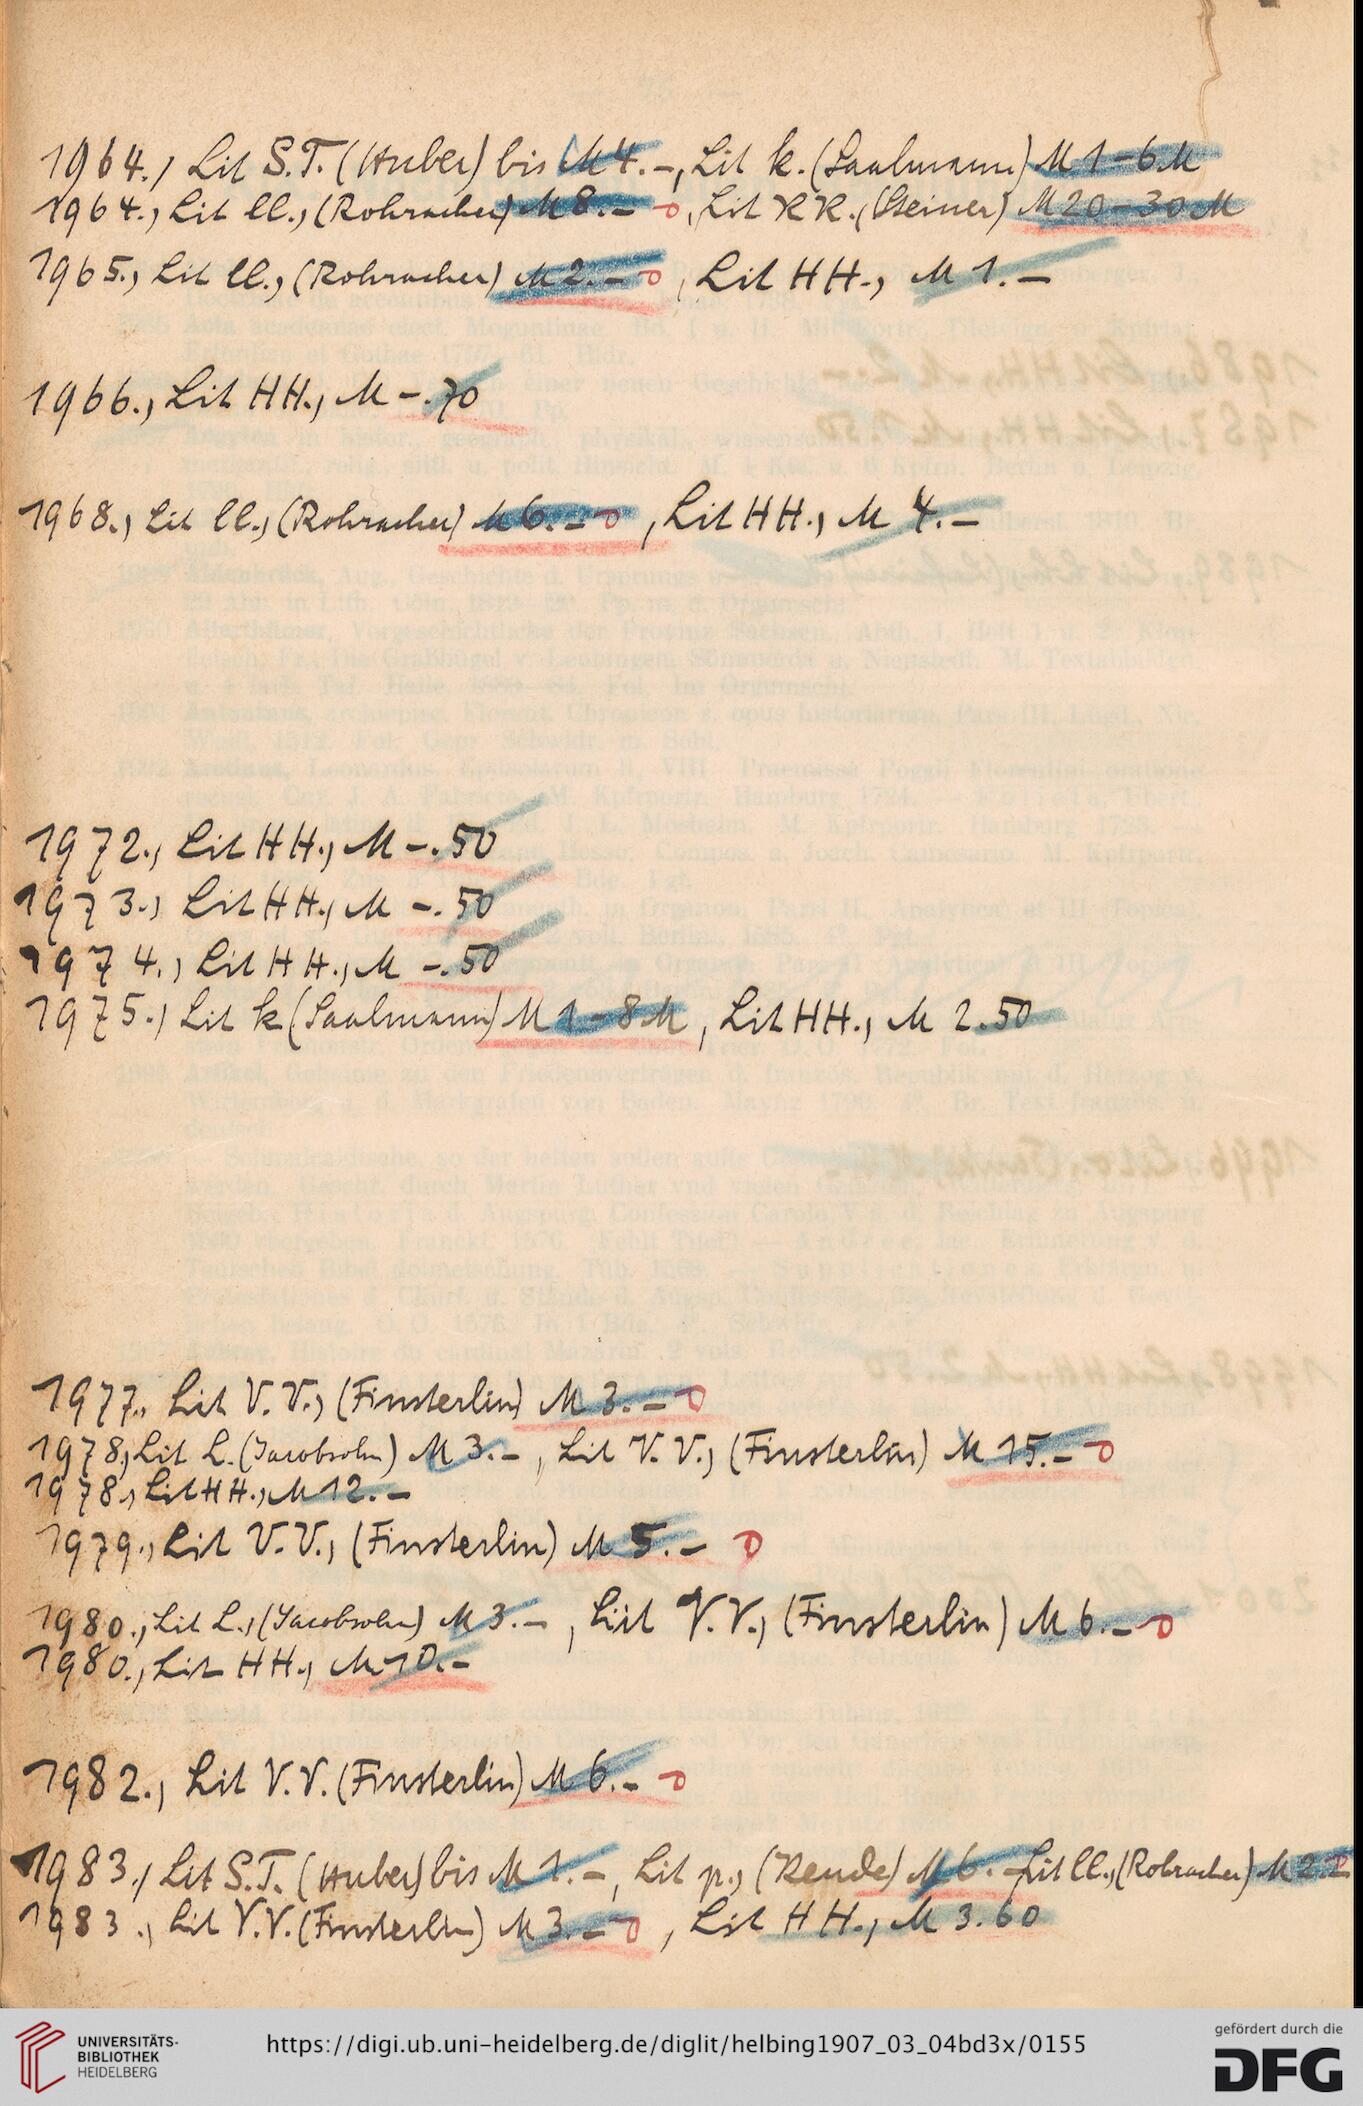 1964., Lit S.T. (Huber) bis M 4.–, Lit k. (Saalmann) M 1–6 M
1964., Lit ll., (Rohracher) M 8.–, Lit KK. (Steiner) M 20–30 M
1965., Lit ll., (Rohracher) M 2.–, Lit HH., M 1.–
1966., Lit HH., M –.70
1968., Lit ll., (Rohracher) M 6.–, Lit HH., M 4.–
1972., Lit HH., M –.50
1973., Lit HH., M –.50
1974., Lit HH., M –.50
1975., Lit k (Saalmann) M 1–8 M, Lit HH., M 2.50
1977., Lit V.V., (Finsterlin) M 3.–
1978., Lit L. (Jacobsohn) M 3.–, Lit V.V., (Finsterlin) M 15.–
1978., Lit HH., M 12.–
1979., Lit V.V., (Finsterlin) M 5.–
1980., Lit L., (Jacobsohn) M 3.–, Lit V.V., (Finsterlin) M 6.–
1980., Lit HH., M 10.–
1982., Lit V.V. (Finsterlin) M 6.–
1983., Lit S.T. (Huber) bis M 1.–, Lit p., (Rende) M 6.– Lit ll., (Rohracher) M 2.–
1983., Lit V.V. (Finsterlin) M 3.–, Lit HH., M 3.60
UNIVERSITÄTS-
BIBLIOTHEK
HEIDELBERG
https://digi.ub.uni-heidelberg.de/diglit/helbing1907_03_04bd3x/0155
gefördert durch die
DFG